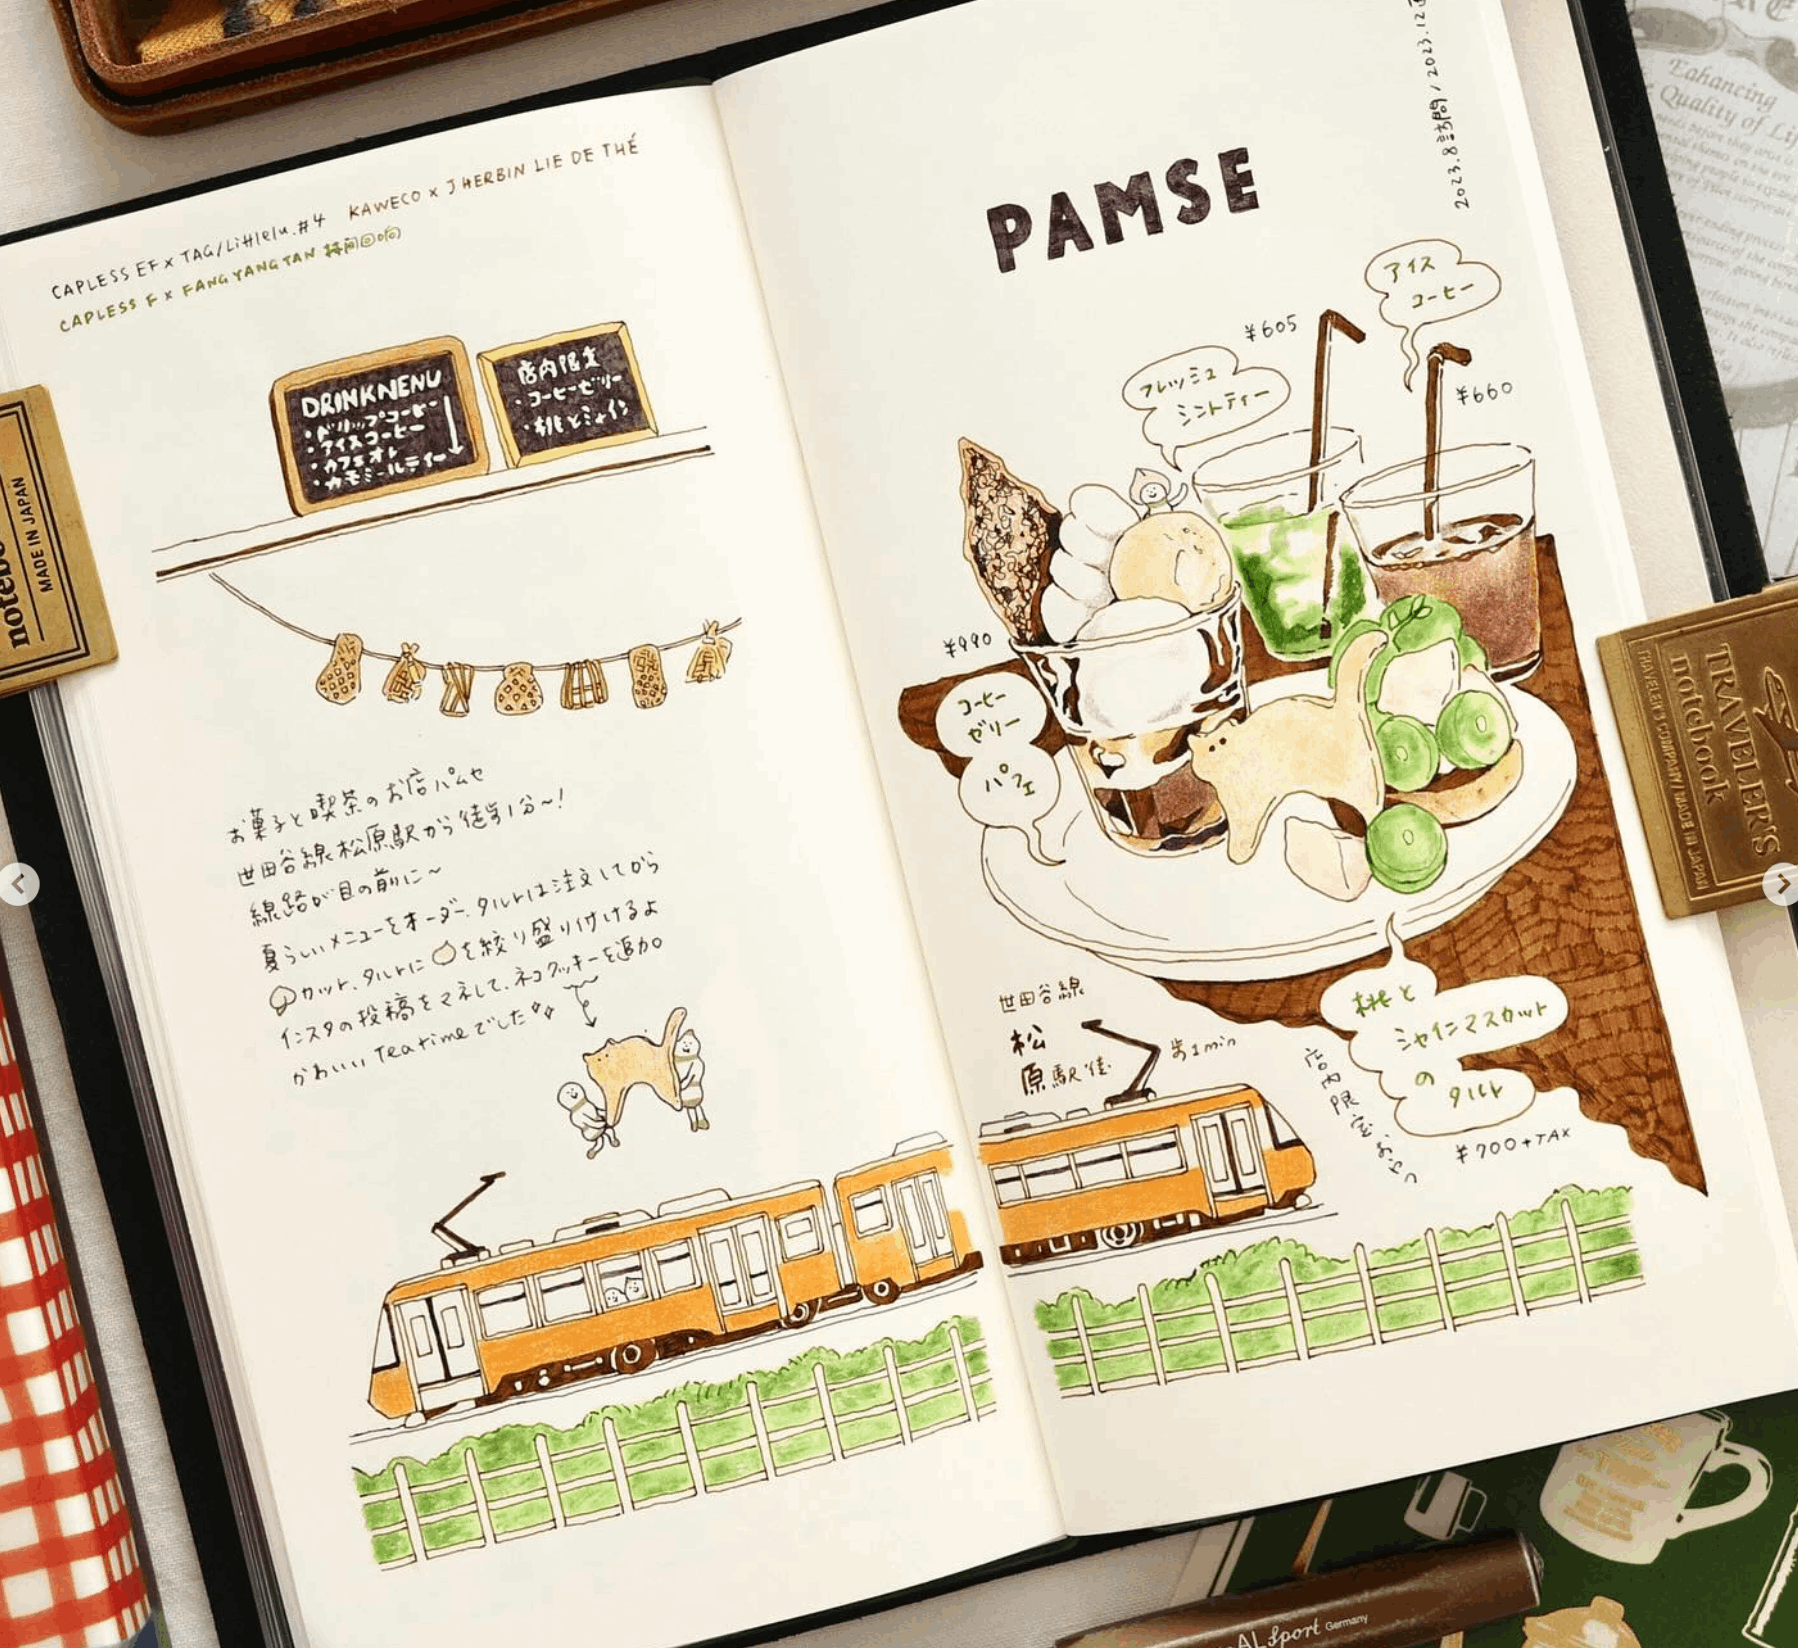 CAPLESS EF x TAG/Littlelu.#4 KAWECO x J HERBIN LIE DE THÉ
CAPLESS F x FANGYANGTAN
DRINKNENU
・ドリップコーヒー
・アイスコーヒー
・カフェオレ
・カモミールティー
店内限定
・コーヒーゼリー
・桃とシャイン
お菓子と喫茶のお店パムセ
世田谷線松原駅から徒歩1分~!
線路が目の前に~
夏らしいメニューをオーダー、タルトは注文してから
カット、タルトに を絞り盛り付けるよ
インスタの投稿をマネして、ネコクッキーを追加。
かわいいTea timeでした
PAMSE
2023.8訪問/2023.12
アイス
コーヒー
¥605
¥660
フレッシュ
ミントティー
¥990
コーヒー
ゼリー
パフェ
桃と
シャインマスカット
の
タルト
¥700+TAX
店内限定おやつ
世田谷線
松
原駅徒
歩1min
notebo
MADE IN JAPAN
TRAVELER'S
notebook
TRAVELER'S COMPANY // MADE IN JAPAN
Enhancing
Quality of Li
AL Sport Germany